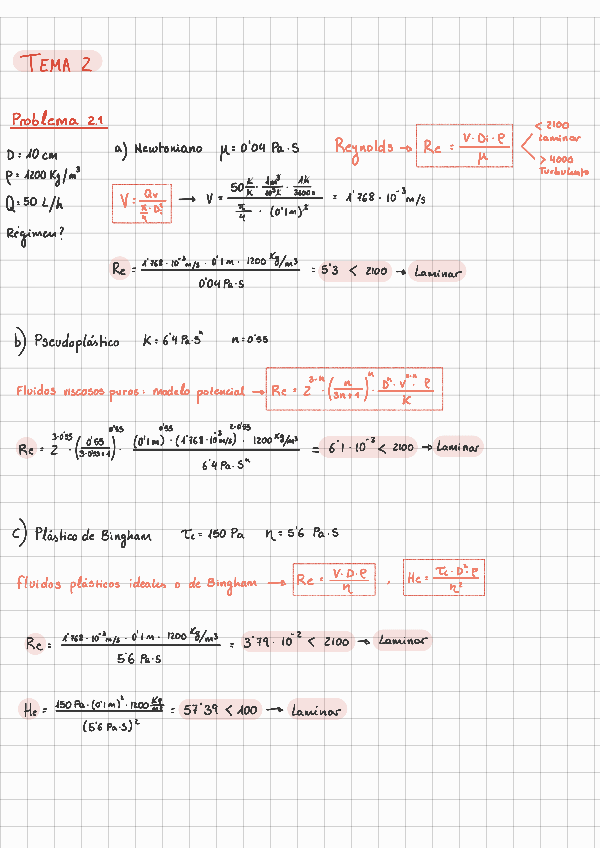 TEMA 2
Problema 2.1
D = 10 cm
ρ = 1200 Kg/m³
Q = 50 L/h
Régimen?
a) Newtoniano μ = 0'04 Pa·S
Reynolds → Re = V·Di·ρ / μ < 2100 Laminar > 4000 Turbulento
V = Qv / (π/4 · Di²) → V = (50 L/h · 1m³/10³L · 1h/3600s) / (π/4 · (0'1m)²) = 1'768 · 10⁻³ m/s
Re = (1'768 · 10⁻³ m/s · 0'1m · 1200 Kg/m³) / 0'04 Pa·S = 5'3 < 2100 → Laminar
b) Pseudoplástico K = 6'4 Pa·Sⁿ n = 0'55
Fluidos viscosos puros: modelo potencial → Re = 2³⁻ⁿ · (n / 3n+1)ⁿ · Dⁿ · V²⁻ⁿ · ρ / K
Re = 2^(3-0'55) · (0'55 / 3·0'55+1)^0'55 · (0'1m)^0'55 · (1'768·10⁻³ m/s)^(2-0'55) · 1200 Kg/m³ / 6'4 Pa·Sⁿ = 6'1 · 10⁻³ < 2100 → Laminar
c) Plástico de Bingham τc = 150 Pa η = 5'6 Pa·S
Fluidos plásticos ideales o de Bingham → Re = V·D·ρ / η , He = τc·D²·ρ / η²
Re = (1'768 · 10⁻² m/s · 0'1m · 1200 Kg/m³) / 5'6 Pa·S = 3'79 · 10⁻² < 2100 → Laminar
He = (150 Pa · (0'1m)² · 1200 Kg/m³) / (5'6 Pa·S)² = 57'39 < 100 → Laminar